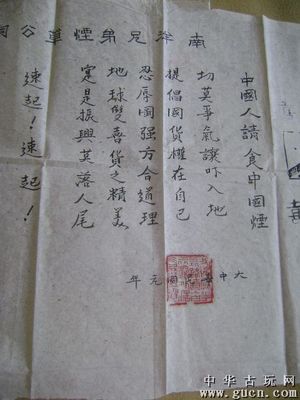 南洋兄弟煙草公司
中國人請食中國煙
切莫爭氣讓吓入地
提倡國貨權在自己
忍辱圖强方合道理
地球雙喜貨之精美
寔是振興莫落人尾
速起！速起！
大中華民國元年
中华古玩网
www.gucn.com